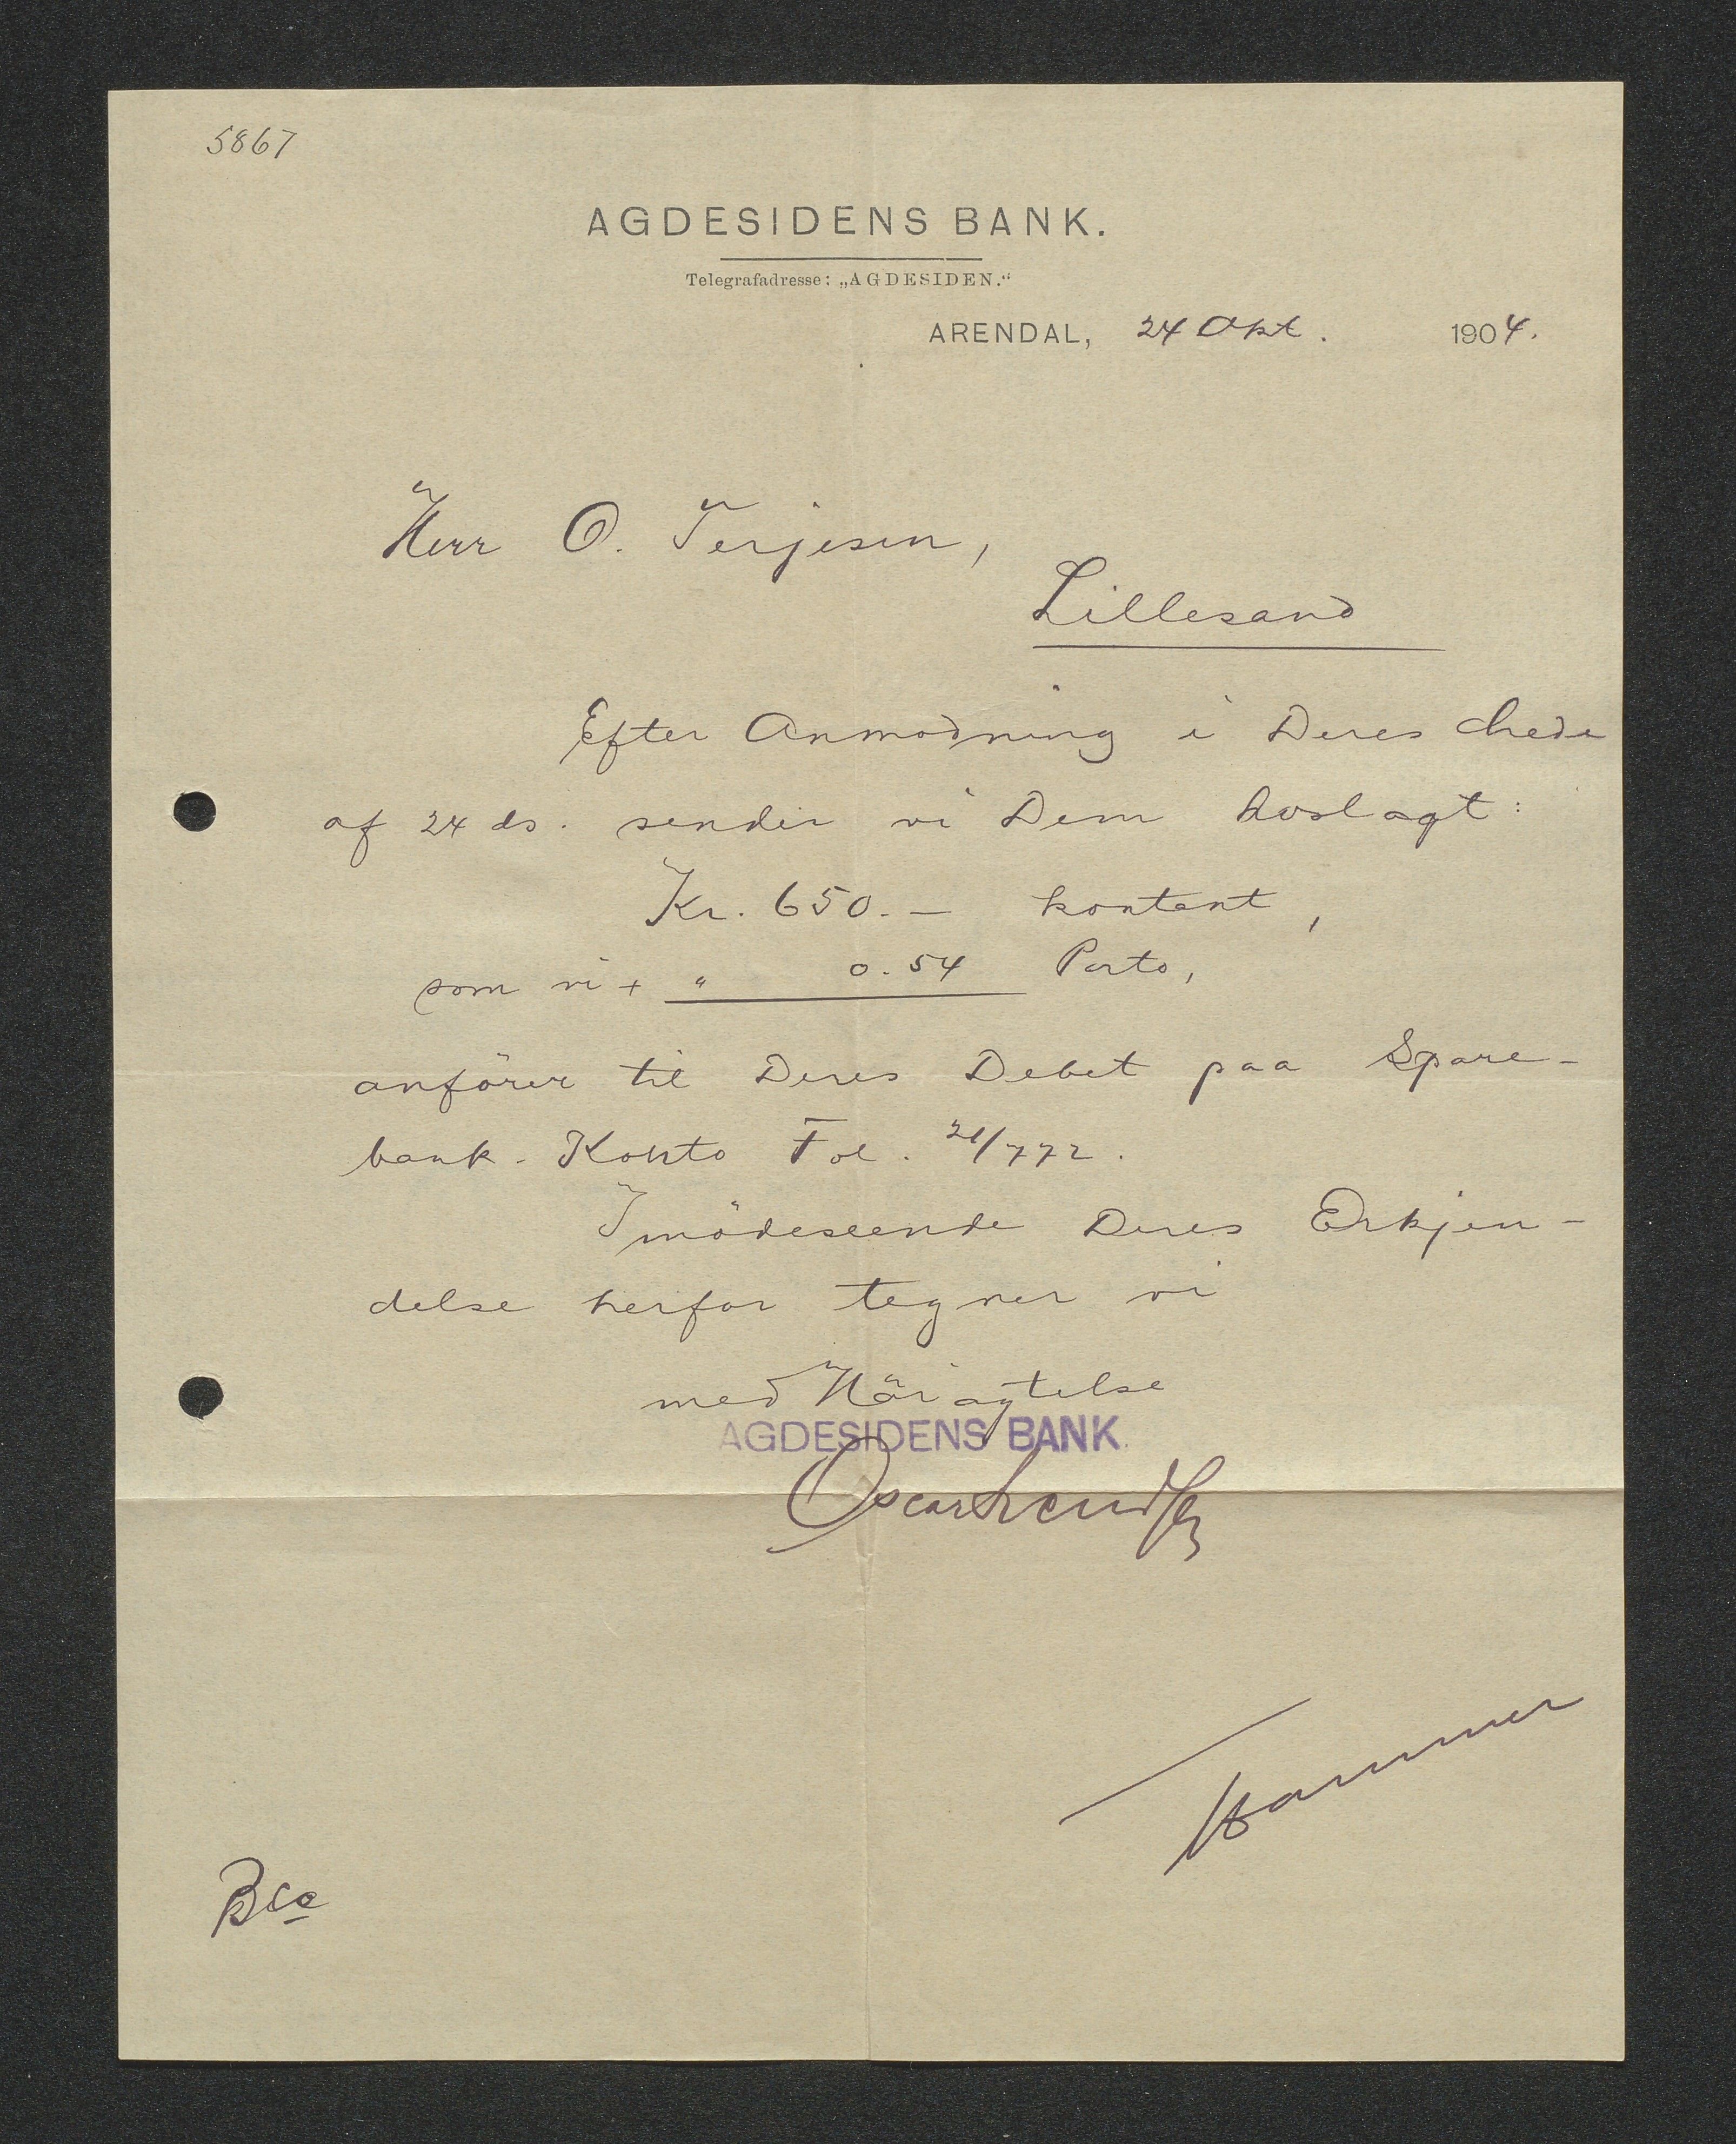 5867
AGDESIDENS BANK.
Telegrafadresse: „AGDESIDEN."
ARENDAL, 24 Okt. 1904.
Herr O. Terjesen,
Lillesand
Efter Anmodning i Deres
af 24 ds. sender vi Dem hoslagt:
Kr. 650.- kontant,
som vi + " 0.54 Porto,
anförer til Deres Debet paa Spare-
bank-Konto Fol. 21/772.
Imödeseende Deres Erkjen-
delse herfor tegner vi
med Höiagtelse
AGDESIDENS BANK.
Oscar